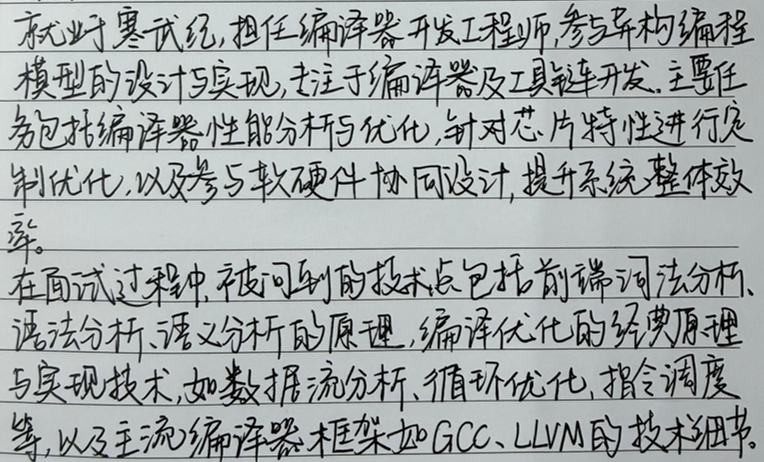 就业于寒武纪,担任编译器开发工程师,参与异构编程
模型的设计与实现,专注于编译器及工具链开发。主要任
务包括编译器性能分析与优化,针对芯片特性进行定
制优化,以及参与软硬件协同设计,提升系统整体效
率。
在面试过程中,被问到的技术点包括前端词法分析、
语法分析、语义分析的原理,编译优化的经典原理
与实现技术,如数据流分析、循环优化、指令调度
等,以及主流编译器框架如GCC、LLVM的技术细节。